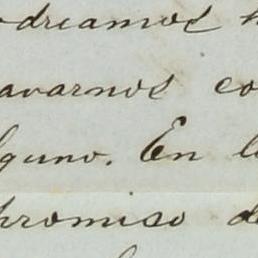 odriamos
avarnos co
lguno. En l
promiso d